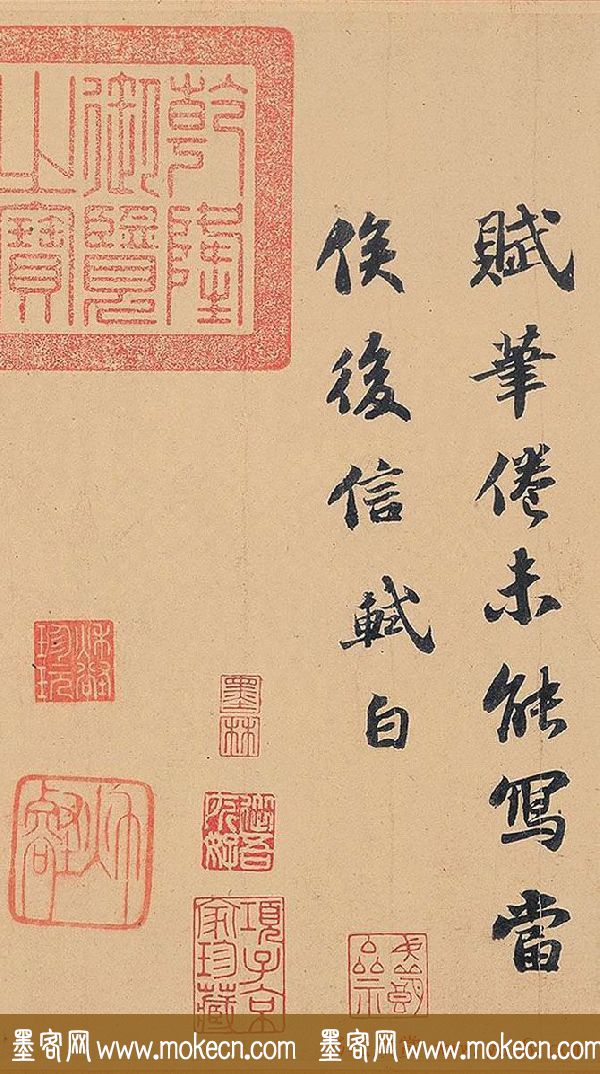 賦筆倦未能寫當
俟後信軾白
乾隆
御覽
之寶
墨林
項子京
家珍藏
墨客网 www.mokecn.com 墨客网 www.mokecn.com